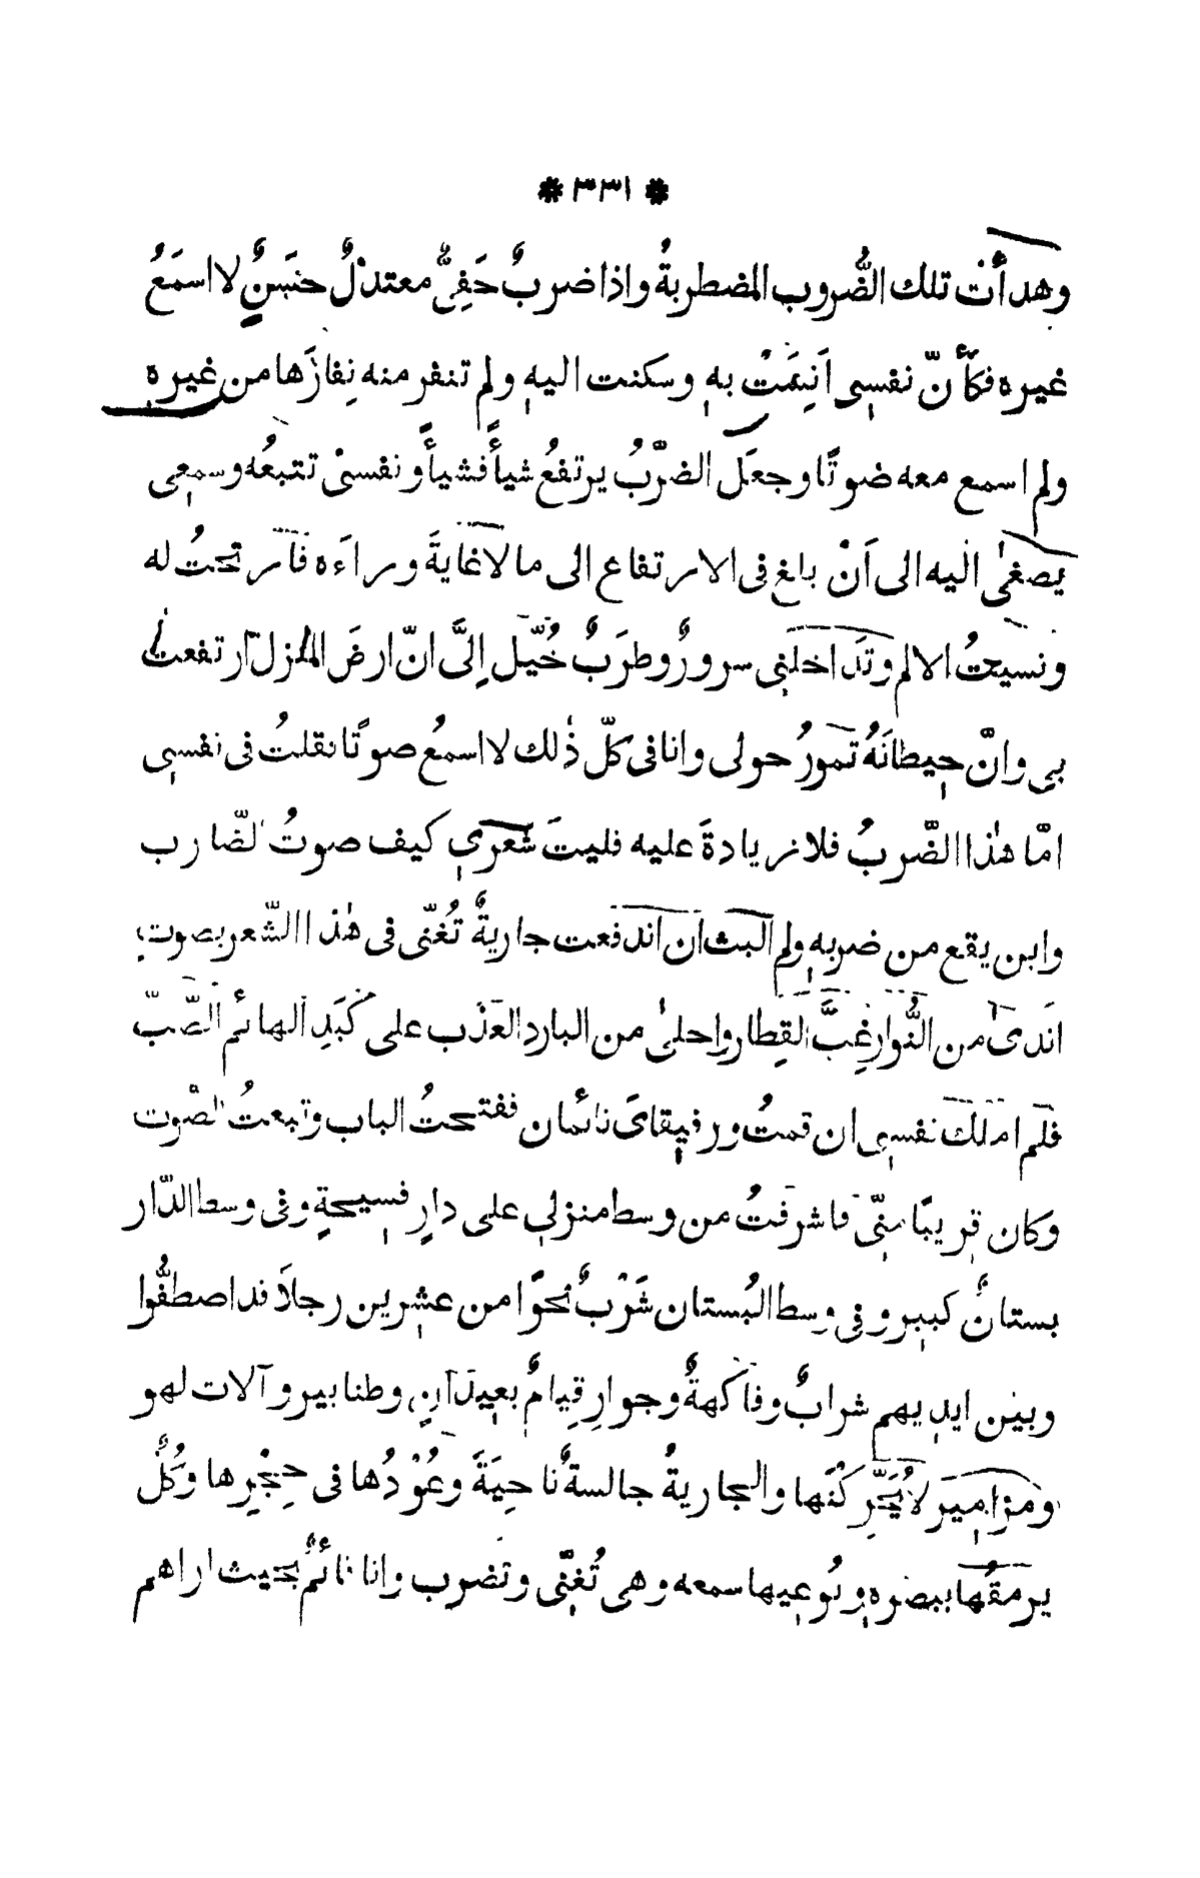 * ٣٣١ *
وهدأَتْ تلك الضُّروب المضطربةُ واذا ضربٌ خَفِىٌّ معتدلٌ حَسَنٌ لا اسمَعُ
غيره فكأنّ نفسى اَنِسَتْ بهِ وسكنت اليهِ ولم تنفر منه نِفارَها من غيرهِ
ولم اسمع معه صوتًا وجعلَ الضّرْبُ يرتفعُ شيأً فشيأً ونفسى تتبعُه وسمعى
يصغىٰ اليه الى اَنْ بلغ فى الارتفاع الى ما لا غايةَ وراءَه فارتحتُ له
ونسيتُ الالم وتداخلنى سرورٌ وطرَبٌ خُيّل اِلىَّ انّ ارضَ المنزل ارتفعت
بى وانّ حيطانَهُ تمورُ حولى وانا فى كلّ ذٰلك لا اسمعُ صوتًا فقلتُ فى نفسى
امّا هٰذا الضّربُ فلا زيادةَ عليه فليتَ شعرى كيف صوتُ الضّارب
واين يقع من ضربهِ ولم البث ان اندفعت جاريةٌ تُغنّى فى هٰذا الشّعر بصوتٍ
اندىٰ من النُّوار غِبَّ القِطار واحلىٰ من البارد العَذْب على كَبَدِ الهائم الصّبّ
فلم املك نفسى ان قمتُ ورفيقاىَ نائمان ففتحتُ الباب وتبعتُ الصّوت
وكان قريبًا منّى فاشرفتُ من وسط منزلى على دارٍ فسيحةٍ وفى وسط الدّار
بستانٌ كبير وفى وسط البُستان شَرْبٌ نحوًا من عشرين رجلاً قد اصطفُّوا
وبين ايديهم شرابٌ وفاكهةٌ وجوارِ قِيامٌ بعيدانٍ وطنابير وآلات لهو
ومزامير لا يُحَرِّكْنَها والجاريةُ جالسةٌ ناحِيَةً وعُوْدُها فى حِجْرِها وكُلٌّ
يرمقُها ببصره ويُوعيها سمعه وهى تُغنّى وتضرب وانا قائمٌ بحيث اراهم